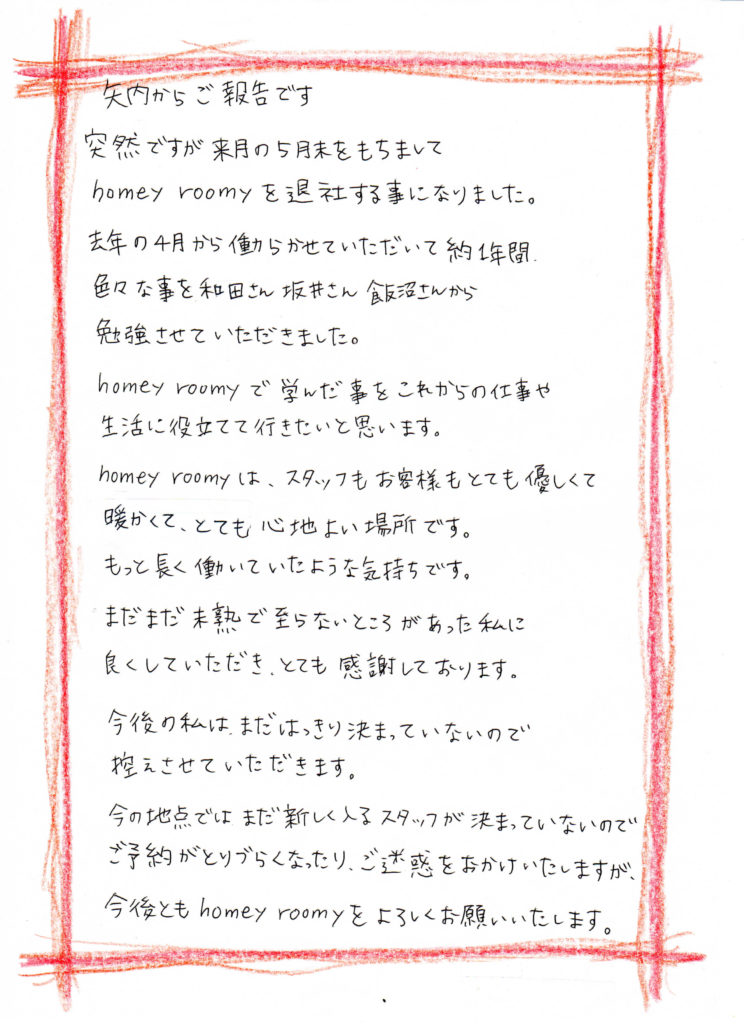 矢内からご報告です
突然ですが来月の5月末をもちまして
homey roomyを退社する事になりました。
去年の4月から働らかせていただいて約1年間.
色々な事を和田さん坂井さん飯沼さんから
勉強させていただきました。
homey roomyで学んだ事をこれからの仕事や
生活に役立てて行きたいと思います。
homey roomyは、スタッフもお客様もとても優しくて
暖かくて、とても心地よい場所です。
もっと長く働いていたような気持ちです。
まだまだ未熟で至らないところがあった私に
良くしていただき、とても感謝しております。
今後の私は、まだはっきり決まっていないので
控えさせていただきます。
今の地点ではまだ新しく入るスタッフが決まっていないので
ご予約がとりづらくなったり、ご迷惑をおかけいたしますが、
今後ともhomey roomyをよろしくお願いいたします。